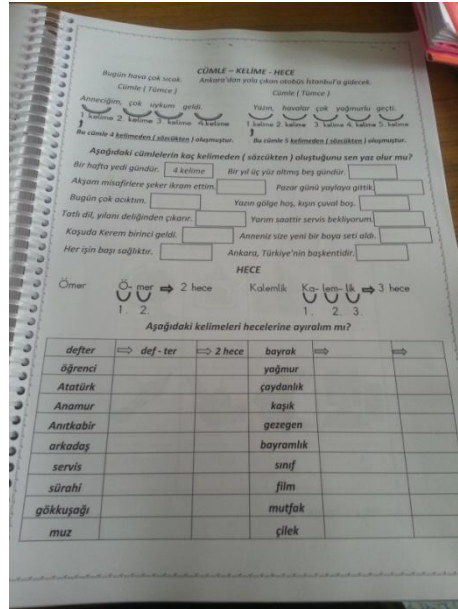 CÜMLE – KELİME - HECE
Bugün hava çok sıcak. Ankara'dan yola çıkan otobüs İstanbul'a gidecek.
Cümle ( Tümce ) Cümle ( Tümce )
Anneciğim, çok uykum geldi. Yazın, havalar çok yağmurlu geçti.
1. kelime 2. kelime 3. kelime 4.kelime 1. kelime 2. kelime 3. kelime 4. kelime 5. kelime
Bu cümle 4 kelimeden ( sözcükten ) oluşmuştur. Bu cümle 5 kelimeden ( sözcükten ) oluşmuştur.
Aşağıdaki cümlelerin kaç kelimeden ( sözcükten ) oluştuğunu sen yaz olur mu?
Bir hafta yedi gündür. 4 kelime Bir yıl üç yüz altmış beş gündür.
Akşam misafirlere şeker ikram ettim. Pazar günü yaylaya gittik.
Bugün çok acıktım. Yazın gölge hoş, kışın çuval boş.
Tatlı dil, yılanı deliğinden çıkarır. Yarım saattir servis bekliyorum.
Koşuda Kerem birinci geldi. Anneniz size yeni bir boya seti aldı.
Her işin başı sağlıktır. Ankara, Türkiye'nin başkentidir.
HECE
Ömer Ö- mer ⇨ 2 hece Kalemlik Ka- lem- lik ⇨ 3 hece
1. 2. 1. 2. 3.
Aşağıdaki kelimeleri hecelerine ayıralım mı?
defter ⇨ def - ter ⇨ 2 hece bayrak ⇨ ⇨
öğrenci yağmur
Atatürk çaydanlık
Anamur kaşık
Anıtkabir gezegen
arkadaş bayramlık
servis sınıf
sürahi film
gökkuşağı mutfak
muz çilek